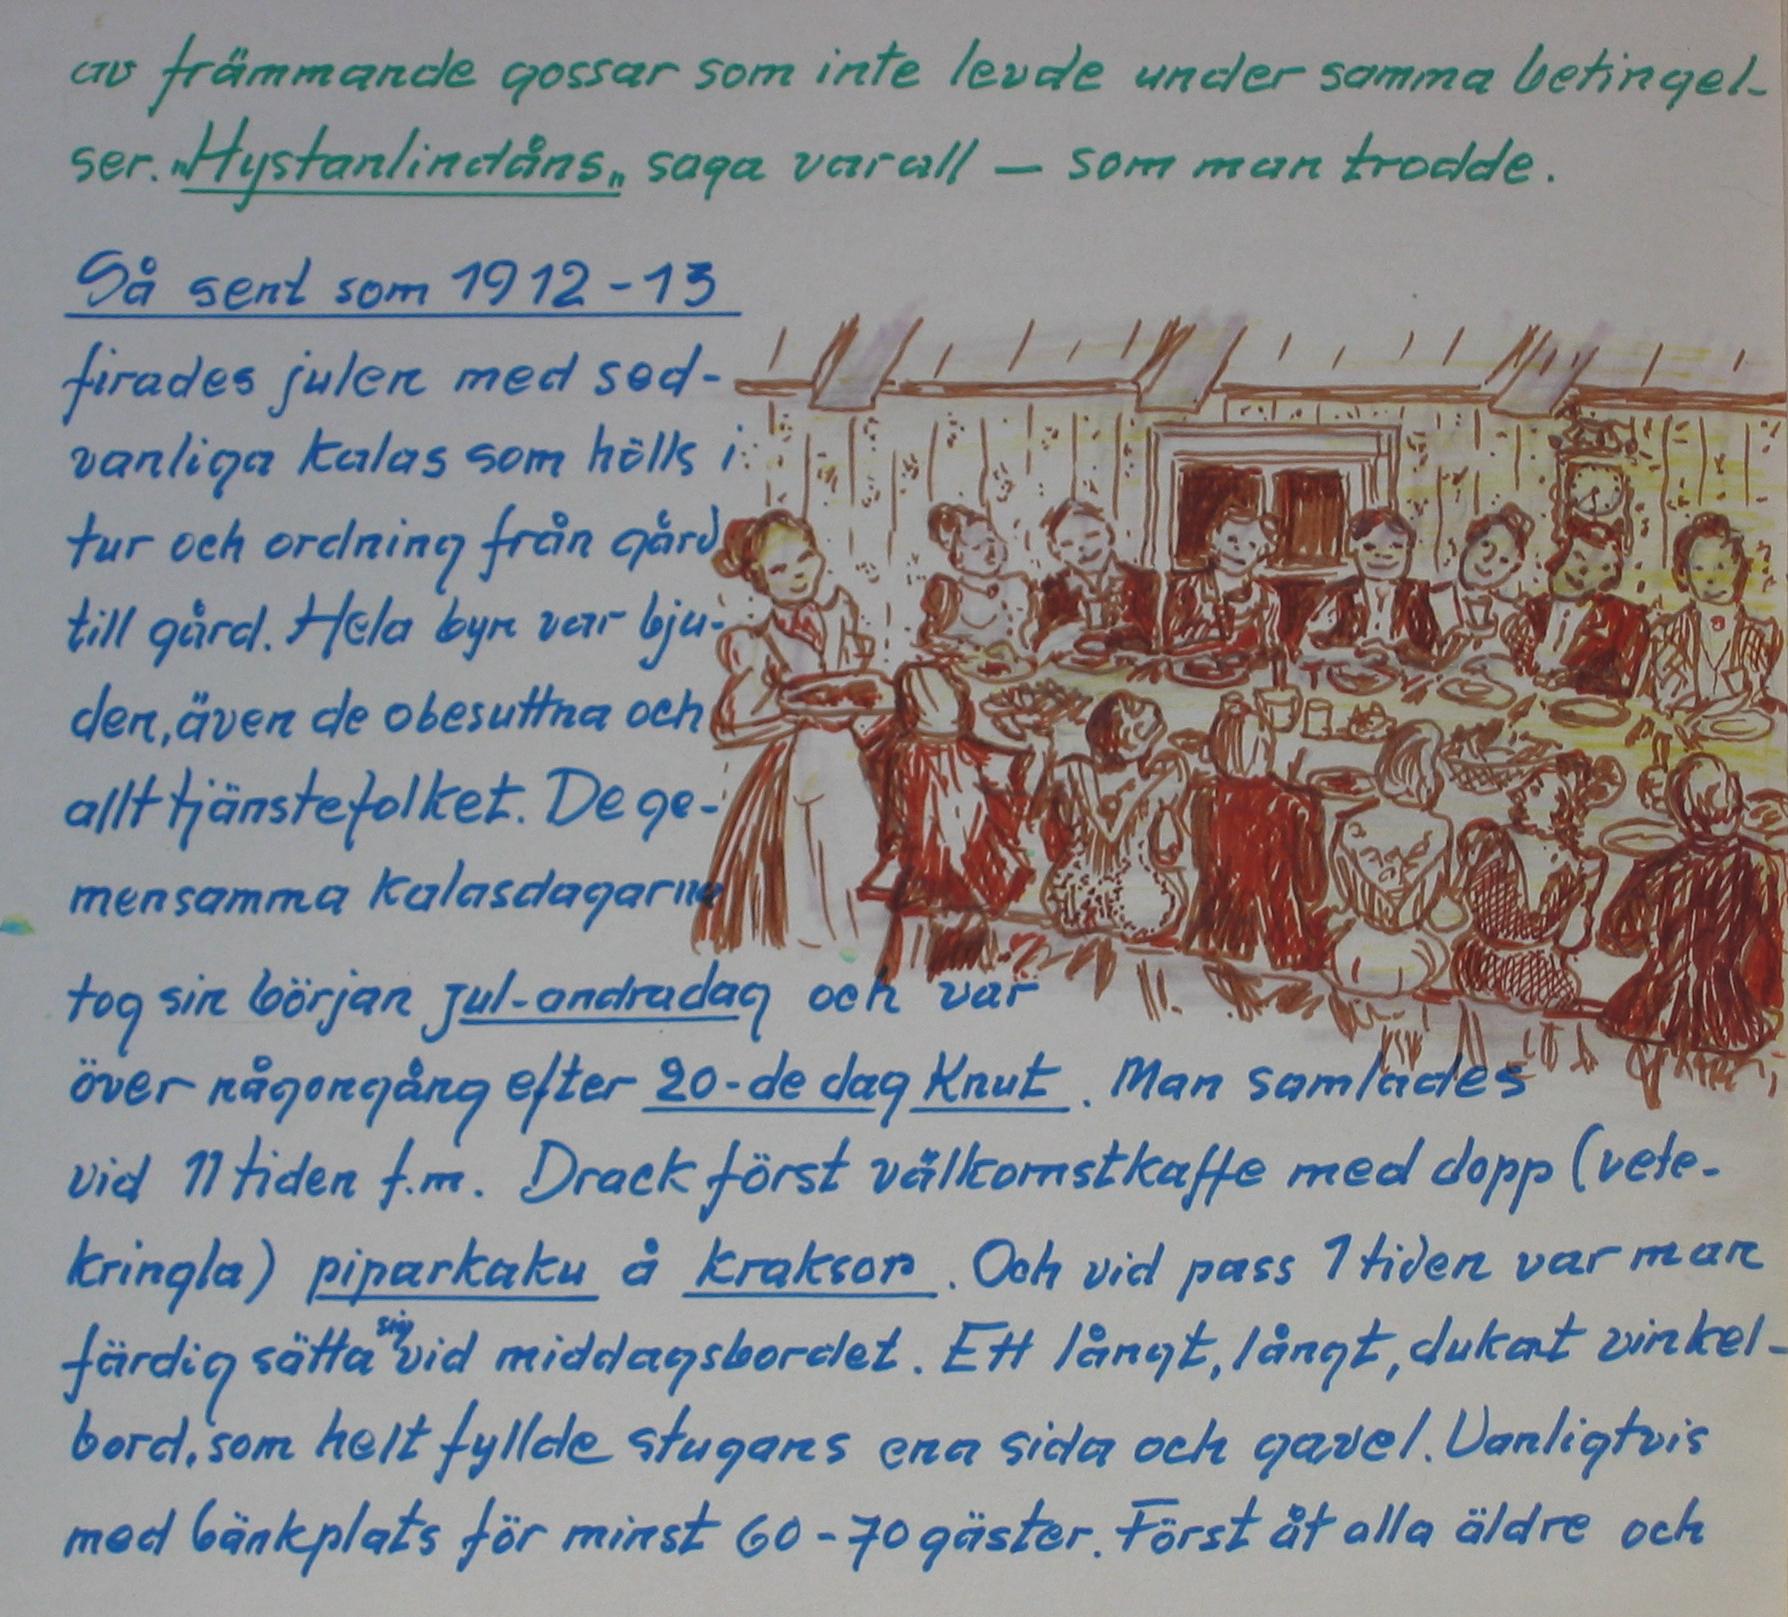 av främmande gossar som inte levde under samma betingel-
ser. "Hystanlindåns" saga var all — som man trodde.
Så sent som 1912-13
firades julen med sed-
vanliga kalas som hölls i
tur och ordning från gård
till gård. Hela byn var bju-
den, även de obesuttna och
allt tjänstefolket. De ge-
mensamma kalasdagarna
tog sin början jul-andradag och var
över någongång efter 20-de dag Knut. Man samlades
vid 11 tiden f.m. Drack först välkomstkaffe med dopp (vete-
kringla) piparkaku å krakson. Och vid pass 1 tiden var man
färdig sätta sig vid middagsbordet. Ett långt, långt, dukat vinkel-
bord, som helt fyllde stugans ena sida och gavel. Vanligtvis
med bänkplats för minst 60-70 gäster. Först åt alla äldre och